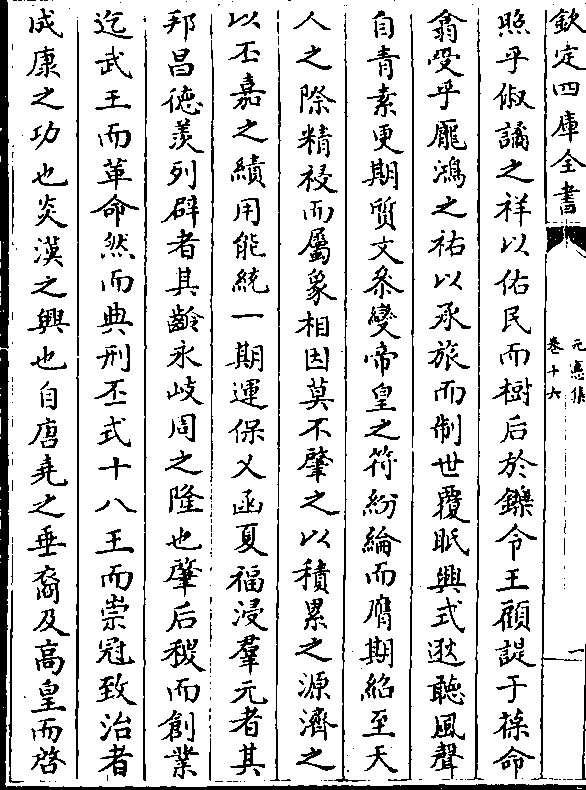 欽定四庫全書
元憲集
卷十六
一
照乎俶譎之祥以佑民而樹后於鑠令王顧諟于葆命
翕受乎厖鴻之祐以承旅而制世覆眂興式逖聽風聲
自青素更期質文叅變帝皇之符紛綸而膺期紹至天
人之際精祲而屬象相因莫不肇之以積累之源濟之
以丕嘉之績用能統一期運保乂函夏福浸羣元者其
邦昌德羨列辟者其齡永岐周之隆也肇后稷而創業
迄武王而革命然而典刑丕式十八王而崇冠致治者
成康之功也炎漢之興也自唐堯之垂裔及高皇而啓